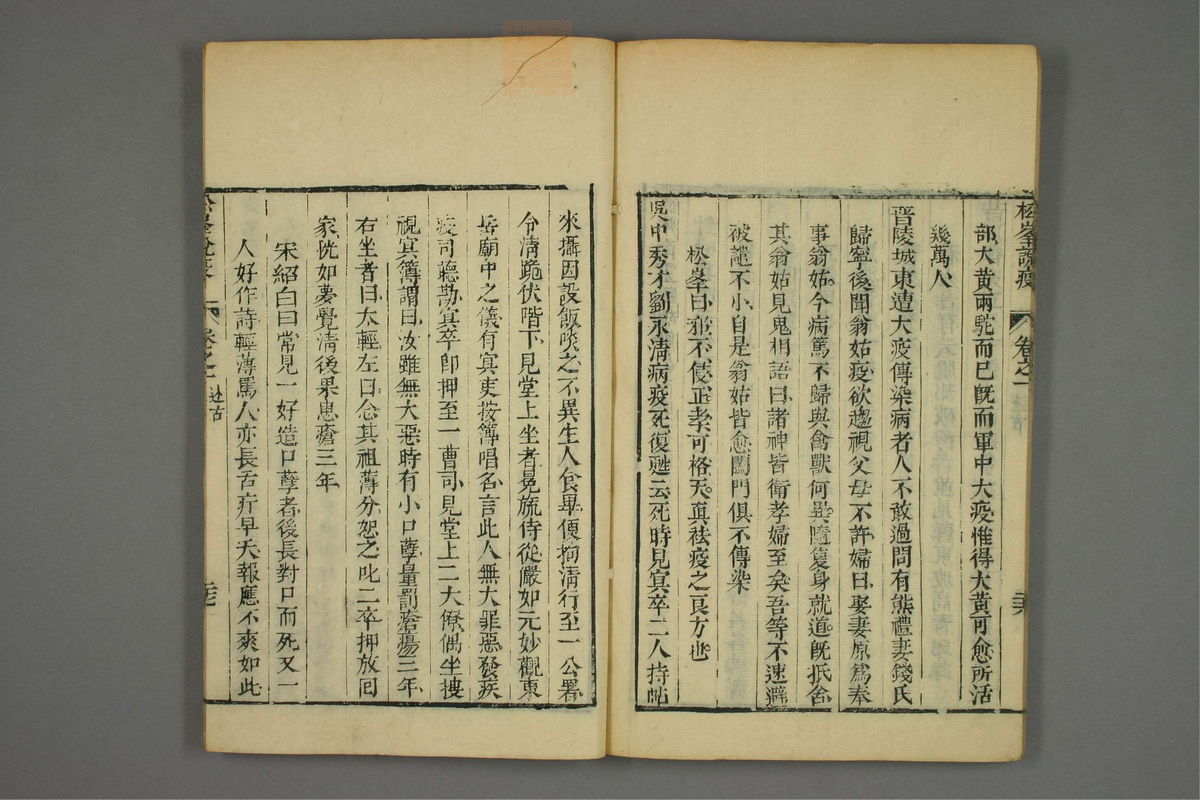 松峯說疫 卷之一 述古
部大黄兩駝而已旣而軍中大疫惟得大黄可愈所活
幾萬人
晋陵城東遭大疫傳染病者人不敢過問有熊禮妻錢氏
歸寧後聞翁姑疫欲趨視父母不許婦曰娶妻原爲奉
事翁姑今病篤不歸與禽獸何異隨隻身就道旣抵舍
其翁姑見鬼相語曰諸神皆衛孝婦至矣吾等不速避
被譴不小自是翁姑皆愈闔門俱不傳染
松峯曰邪不侵正孝可格天真祛疫之良方也
吳中秀才劉永清病疫死復甦云死時見冥卒二人持帖
來攝因設飯啖之不異生人食畢便拘清行至一公署
令清跪伏階下見堂上坐者冕旒侍從嚴如元妙觀東
岳廟中之儀有冥吏按簿唱名言此人無大罪惡發疾
疫司聽勘冥卒卽押至一曹司見堂上二大僚偶坐搜
視冥簿謂曰汝雖無大惡時有小口孽量罰瘡瘍三年
右坐者曰太輕左曰念其祖薄分恕之叱二卒押放回
家恍如夢覺清後果患瘡三年
宋紹白曰常見一好造口孽者後長對口而死又一
人好作詩輕薄罵人亦長舌疔早夭報應不爽如此
松峯說疫 卷之一 述古